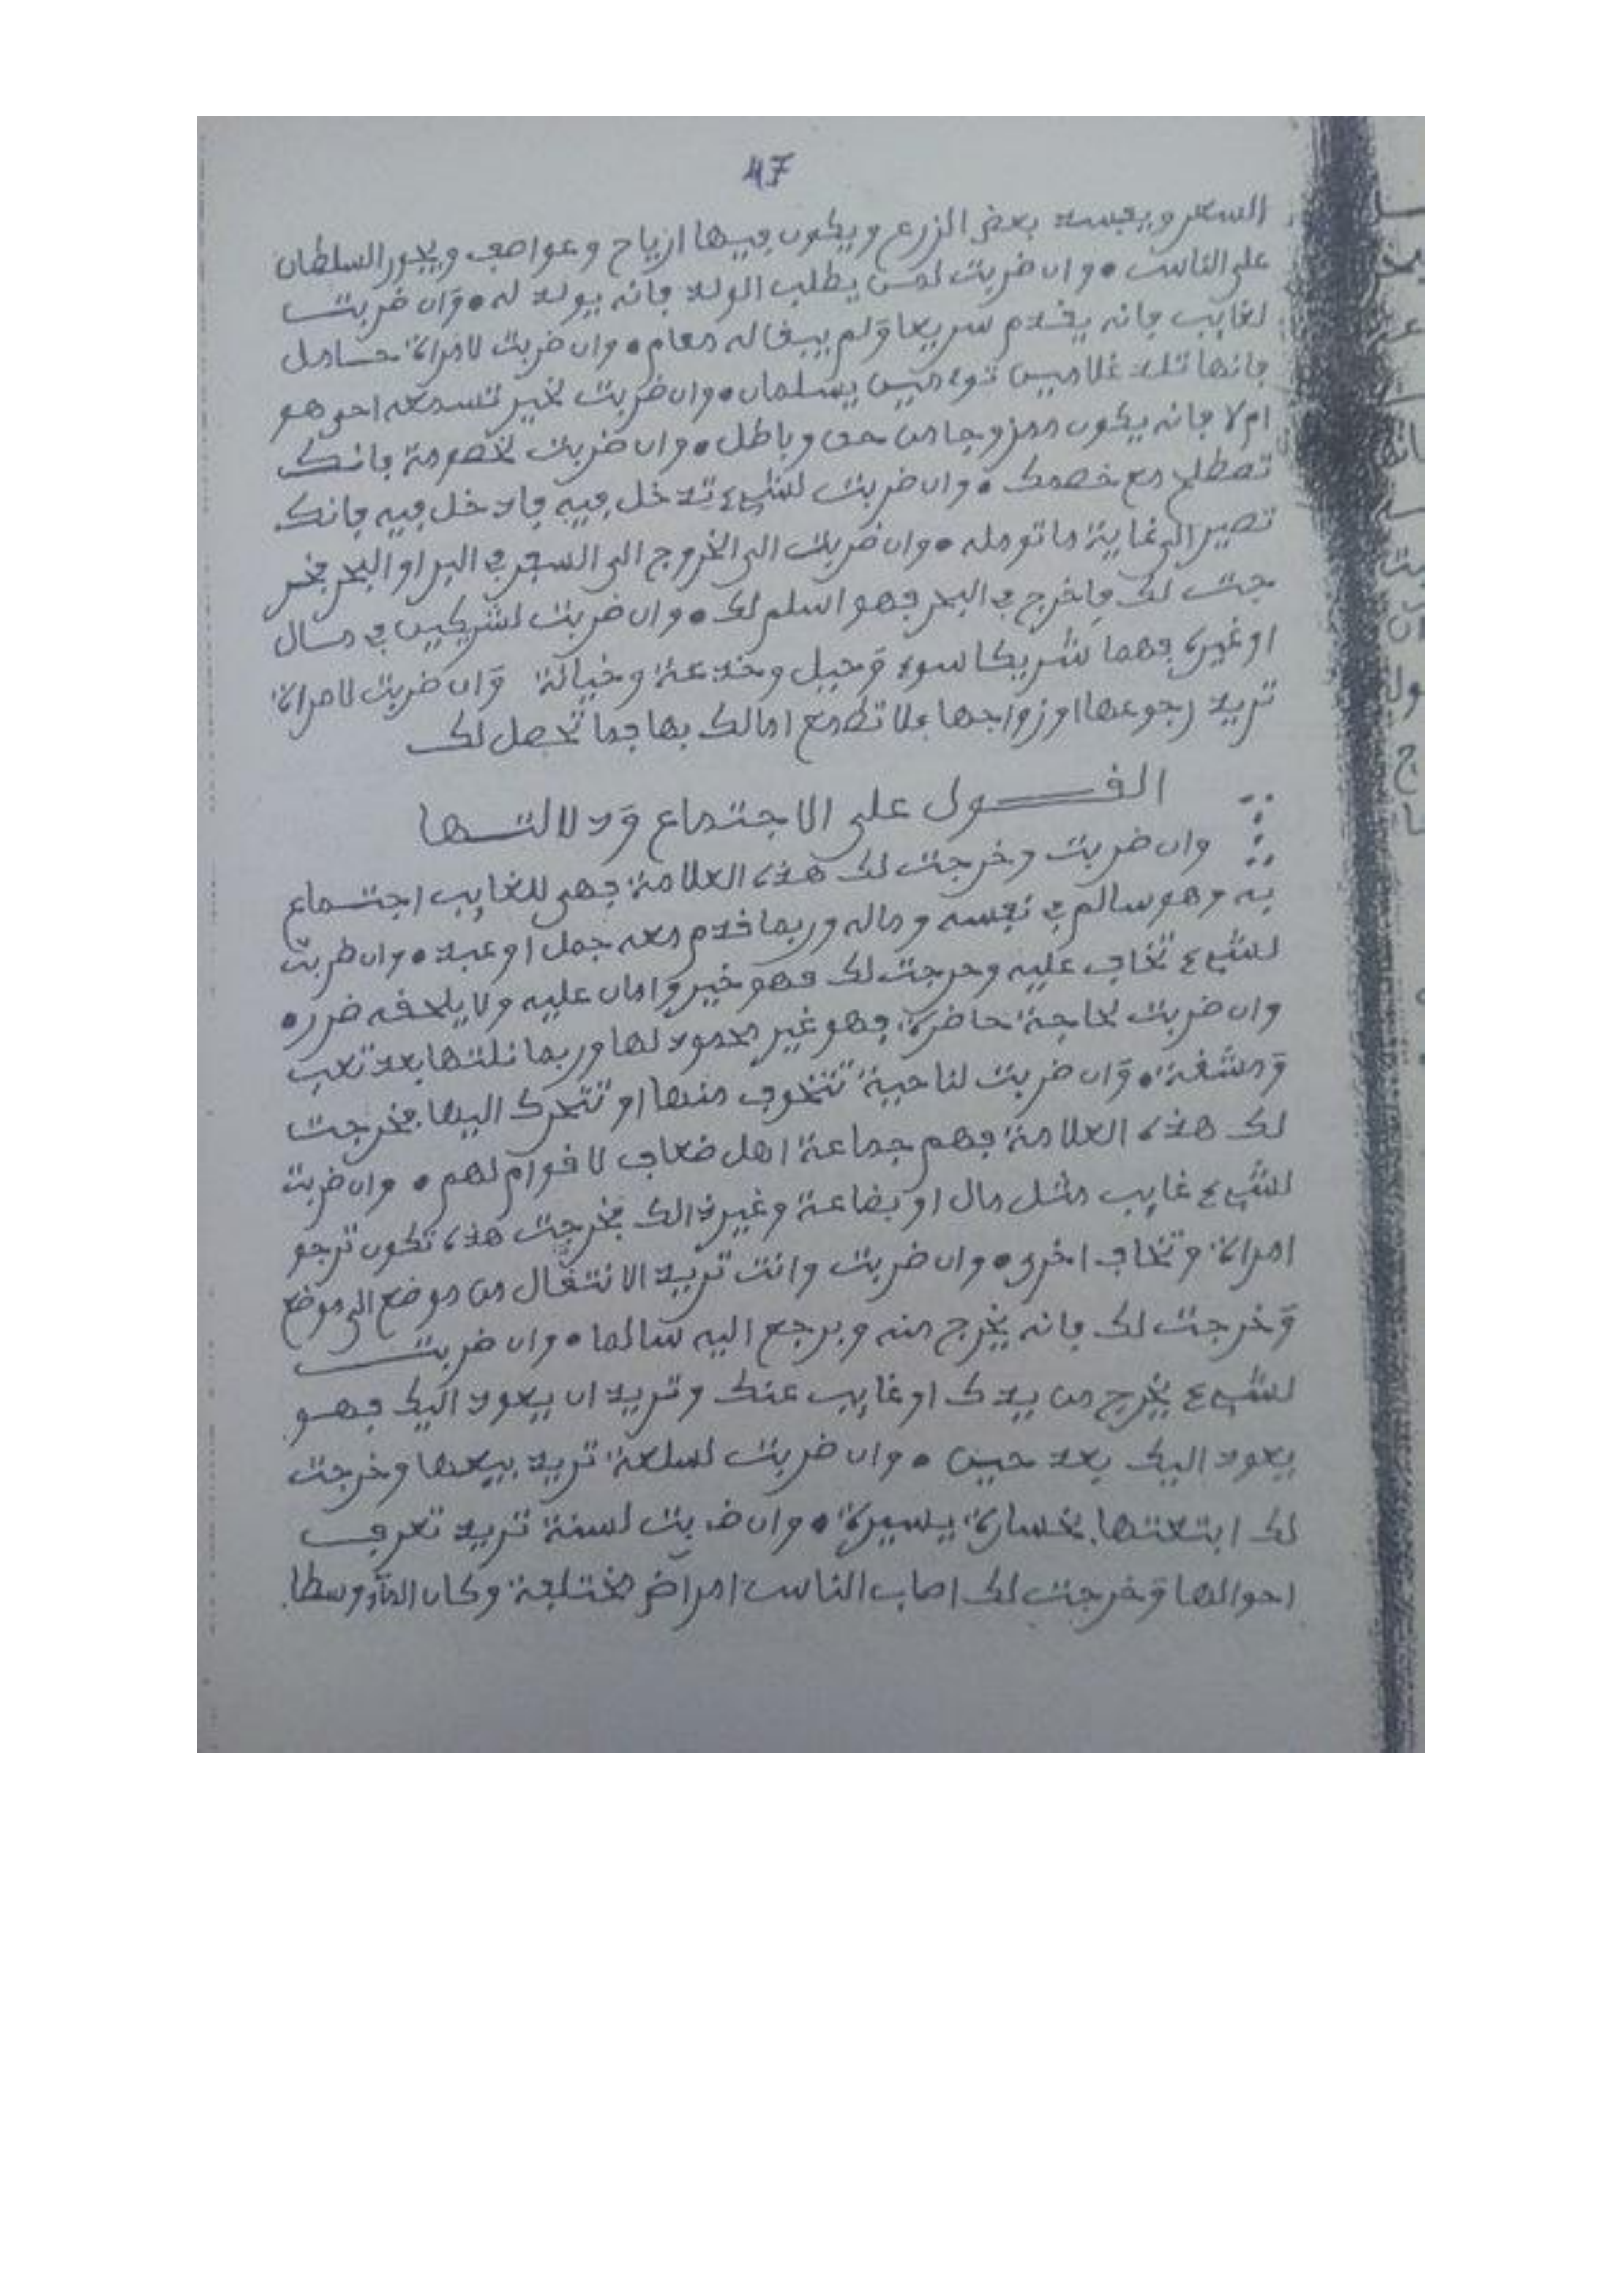 47
السعر ويفسد بعض الزرع ويكون فيها ازياح وعواصف ويجور السلطان
على الناس • وان ضربت لمن يطلب الولد فانه يولد له • وان ضربت
لغايب فانه يقدم سريعا ولم يبقا له مقام • وان ضربت لامراة حامل
فانها تلد غلامين توءمين يسلمان • وان ضربت لخبر تسمعه احق هو
ام لا فانه يكون ممزوجا من حق وباطل • وان ضربت لخصومة فانك
تصطلح مع خصمك • وان ضربت لشيء تدخل فيه فادخل فيه فانك
تصير الى غاية ما تومله • وان ضربت الى الخروج الى السفر في البر او البحر فخر
جت لك فاخرج في البحر فهو اسلم لك • وان ضربت لشريكين في مال
او غيره فهما شريكا سوء وحيل وخدعة وخيانة وان ضربت لامراة
تريد رجوعها او زواجها فلا تطمع امالك بها فما تحصل لك
القول على الاجتماع ودلالتها
وان ضربت وخرجت لك هذه العلامة فهى للغايب اجتماع
به وهو سالم في نفسه وماله وربما قدم معه جمل او عبد • وان ضربت
لشيء تخاف عليه وخرجت لك فهو خير وامان عليه ولا يلحقه ضرر •
وان ضربت لحاجة حاضرة فهو غير محمود لها وربما نلتها بعد تعب
ومشقة • وان ضربت لناحية تتخوف منها او تتحرك اليها فخرجت
لك هذه العلامة فهم جماعة اهل ضعاف لا قوام لهم • وان ضربت
لشيء غايب مثل مال او بضاعة وغير ذالك فخرجت هذه تكون ترجو
امراة وتخاف اخرى • وان ضربت وانت تريد الانتقال من موضع الى موضع
وخرجت لك فانه يخرج منه ويرجع اليه سالما • وان ضربت
لشيء يخرج من يدك او غايب عنك وتريد ان يعود اليك فهو
يعود اليك بعد حين • وان ضربت لسلعة تريد بيعها وخرجت
لك ابتعتها بخسارة يسيرة • وان ضربت لسنة تريد تعرف
احوالها وخرجت لك اصاب الناس امراض مختلفة وكان الماء وسطا